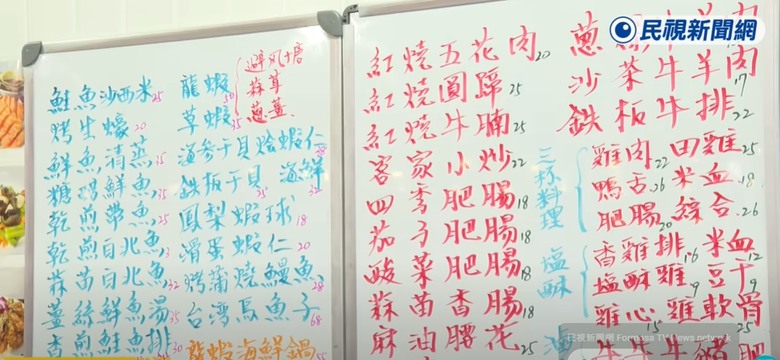 民視新聞網
鮭魚沙西米 25
烤生蠔 20
鮮魚清蒸 35
糖醋鮮魚 35
乾煎帶魚 25
乾煎白北魚
蒜苗白北魚 32
薑絲鮮魚湯 35
香煎鮭魚排 30
龍蝦
草蝦
避风塘
蒜茸
蔥薑
海參干貝燴蝦仁
鉄板干貝 海鮮
鳳梨蝦球 18
滑蛋蝦仁 20
烤蒲燒鰻魚 28
台湾烏魚子 68
龍蝦海鮮鍋
紅燒五花肉 20
紅燒圓蹄 25
紅燒牛腩 25
客家小炒 22
四季肥腸 18
茄子肥腸 18
酸菜肥腸 18
蒜苗香腸 18
麻油腰花 25
沙茶牛羊肉 17
鉄板牛排 22
三杯料理
雞肉 22 田雞 25
鴨舌 26 米血 18
肥腸 20 綜合 26
塩酥
香雞排 16 米血 12
塩酥雞 9 豆干 9
雞心 15 雞軟骨
民視新聞網 Formosa TV News network